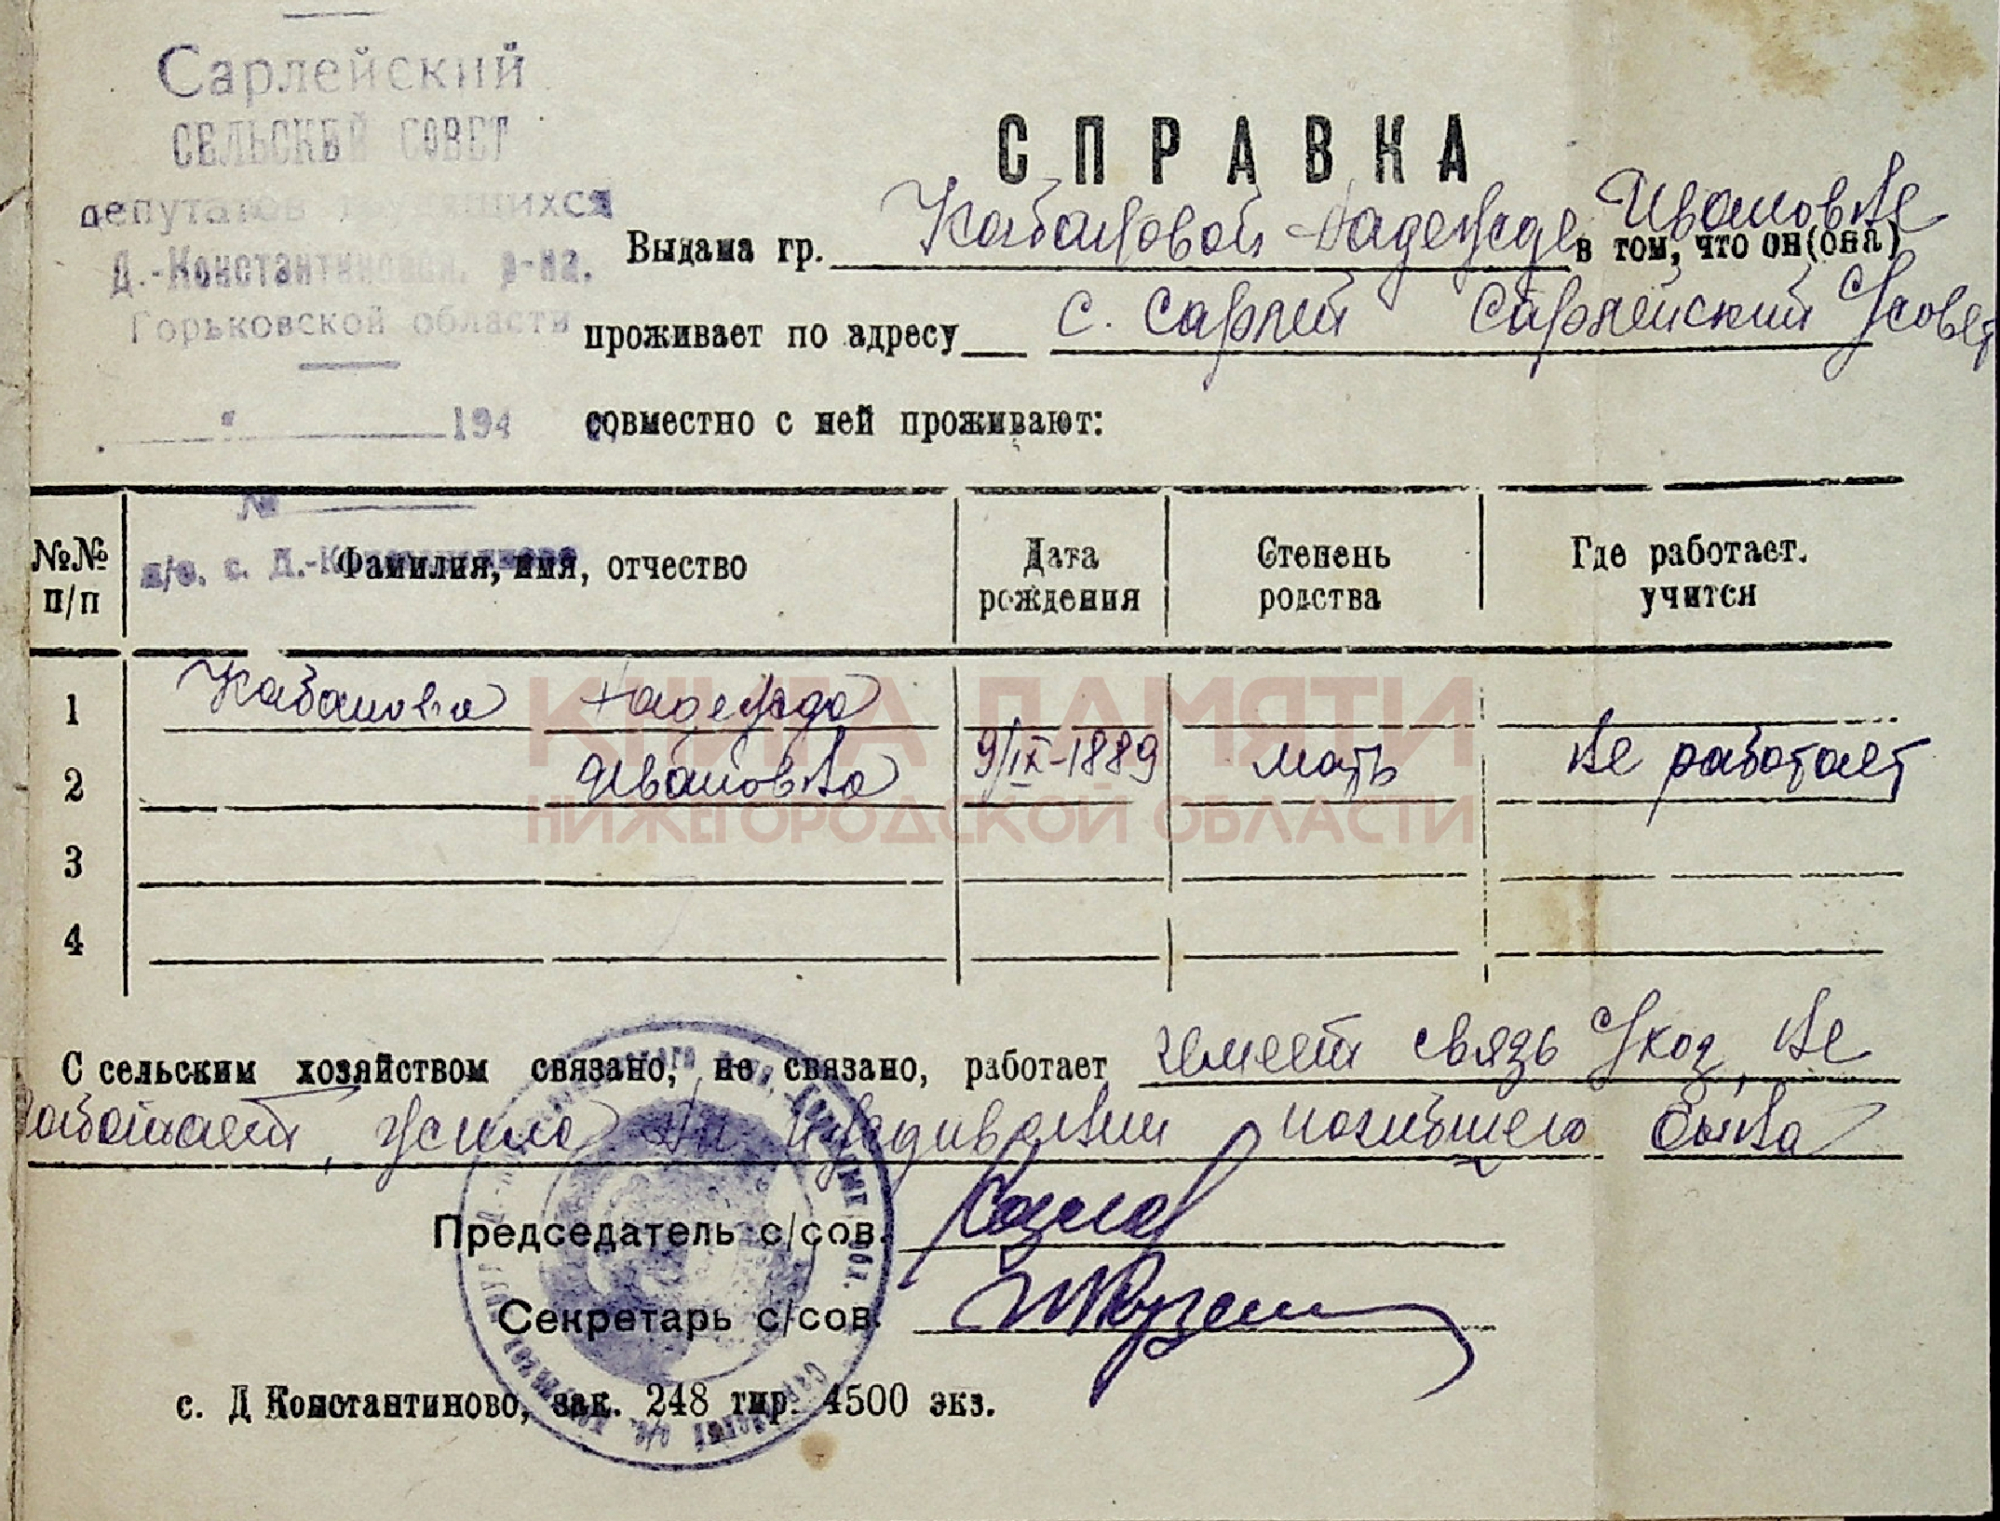 Сарлейский
СЕЛЬСКИЙ СОВЕТ
депутатов трудящихся
Д.-Константиновск. р-на.
Горьковской области
194
№
п/о. с. Д.-Константиново
СПРАВКА
Выдана гр. Кабановой Надежде Ивановне в том, что он(она)
проживает по адресу с. Сарлей Сарлейский с/совет
совместно с ней проживают:
№№ п/п Фамилия, имя, отчество Дата рождения Степень родства Где работает. учится
1 Кабанова Надежда
2 Ивановна 9/IX-1889 мать не работает
3
4
КНИГА ПАМЯТИ
НИЖЕГОРОДСКОЙ ОБЛАСТИ
С сельским хозяйством связано, не связано, работает имеет связь с/хоз, не
работает, жила на иждивении погибшего сына
Председатель с/сов.
Секретарь с/сов.
с. Д Константиново, зак. 248 тир. 4500 экз.